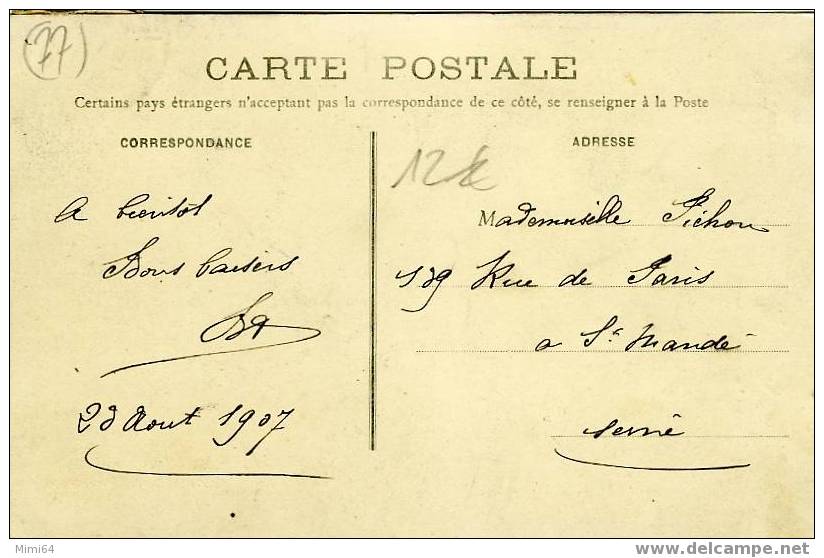 (77)
CARTE POSTALE
Certains pays étrangers n'acceptant pas la correspondance de ce côté, se renseigner à la Poste
CORRESPONDANCE
A bientot
Bons baisers
23 Aout 1907
ADRESSE
12€
Mademoiselle Pichon
139 Rue de Paris
a St Mandé
Seine
Mimi64
www.delcampe.net